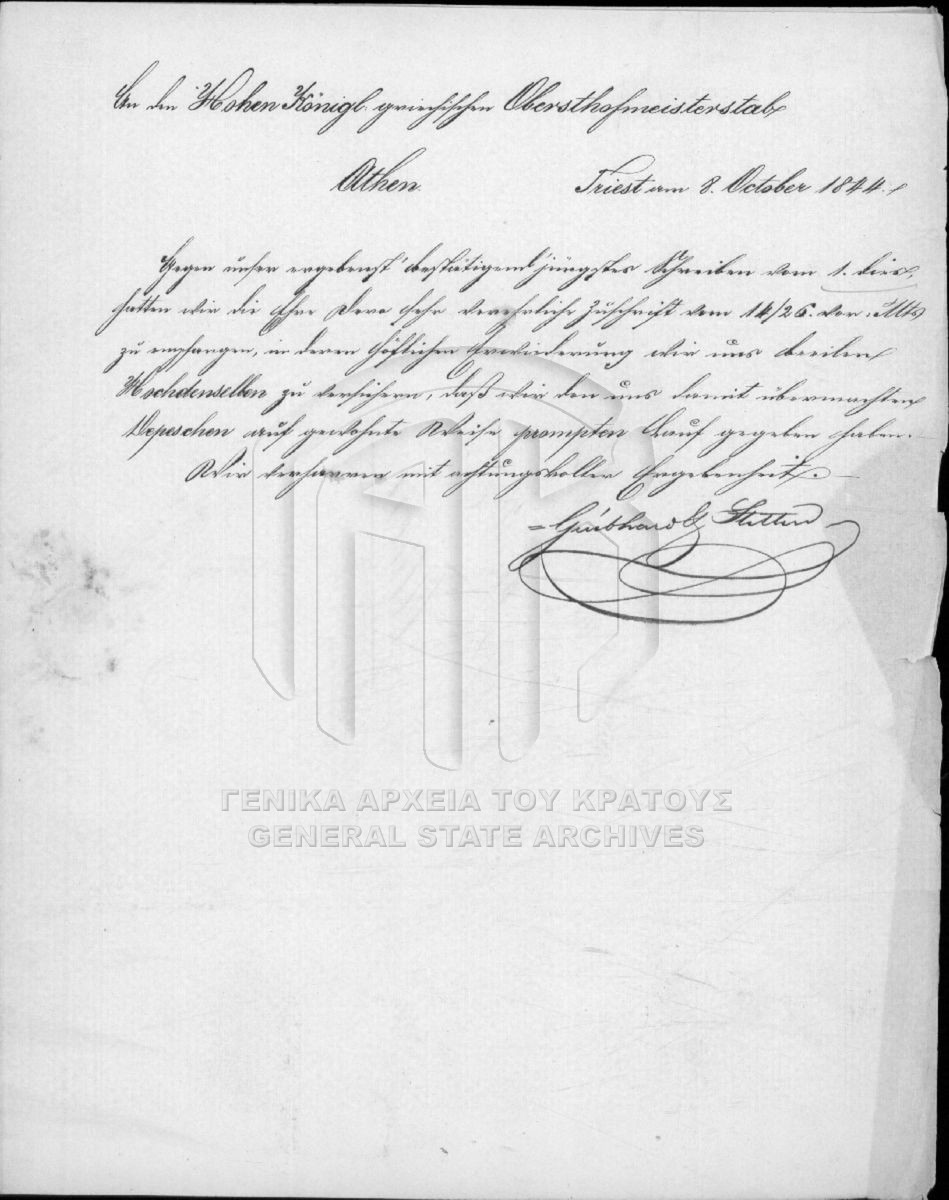 An den Hohen Königl. griechischen Obersthofmeisterstab
Athen. Triest am 8. October 1844.
Gegen unser ergebenst bestätigend jüngstes Schreiben vom 1. dies,
hatten wir die Ehre Dero sehr verehrliche Zuschrift vom 14/26. vor. Mts
zu empfangen, in deren höflichen Erwiederung wir uns beeilen
Hochdenselben zu versichern, daß wir den uns damit übermachten
Depeschen auf gewohnte Weise prompten Lauf gegeben haben.
Wir verharren mit achtungsvoller Ergebenheit.
ΓΕΝΙΚΑ ΑΡΧΕΙΑ ΤΟΥ ΚΡΑΤΟΥΣ
GENERAL STATE ARCHIVES